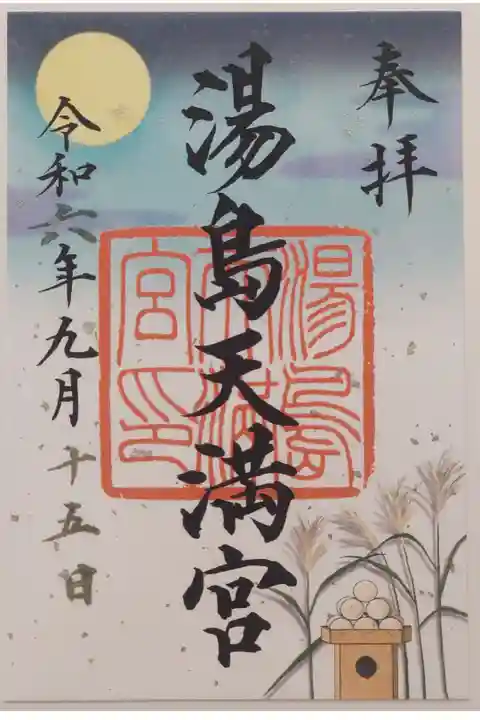 奉拝
湯島天満宮
湯島天満宮印
令和六年九月十五日